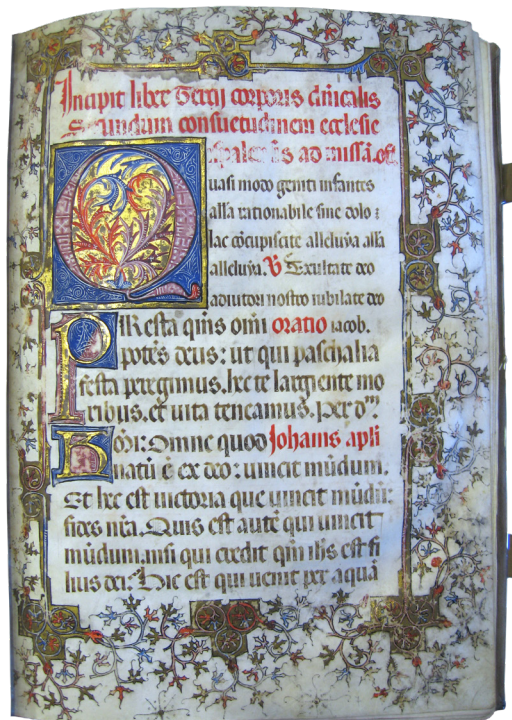 Incipit liber Tercij corporis dn̄icalis
Secundum consuetudinem ecclesie
ad missā. off.
Quasi modo geniti infantes
alła rationabile sine dolo :
lac cōcupiscite alleluya alła
alleluya. V Exultate deo
adiutori nostro iubilate deo
PResta qm̄s om̄i oratio iacob.
potēs deus : ut qui paschalia
festa peregimus. hec te largiente mo
ribus. et uita teneamus. per dm̄.
Kmī : Omne quod Johanis apłi
natū ē ex deo : uincit mūdum.
Et hec est uictoria que uincit mūdū :
fides nr̄a. Quis est autē qui uincit
mūdum. nisi qui credit qm̄ ih̄s est fi
lius dei : Hic est qui uenit per aquā